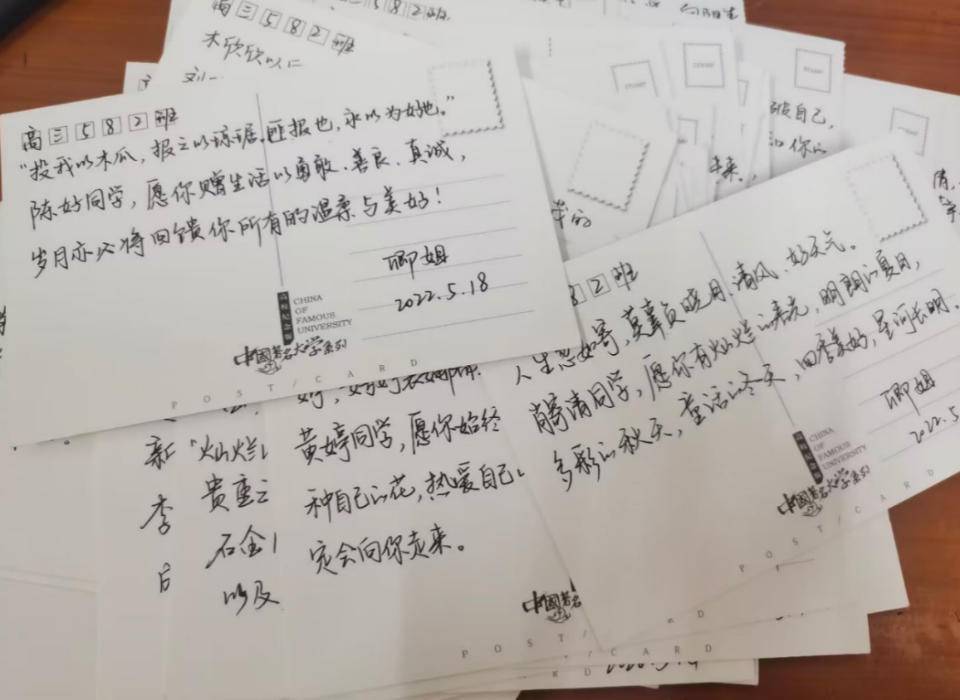 高三582班
木欣欣以
高三582班
"投我以木瓜，报之以琼琚，匪报也，永以为好也。"
陈好同学，愿你赠生活以勇敢、善良、真诚，
岁月亦必将回馈你所有的温柔与美好！
卿姐
2022.5.18
CHINA
OF
FAMOUS
UNIVERSITY
中国著名大学系列
POST/CARD
82班
人生忽如寄，莫辜负晓月、清风、好天气。
同学，愿你有灿烂的春光，明朗的夏日，
多彩的秋天，童话的冬天，四季美好，星河长明。
卿姐
2022.5
CHINA
OF
FAMOUS
UNIVERSITY
中国著名大学系列
POST/CARD
黄婷同学，愿你始终
种自己的花，热爱自己
定会向你走来。
中国著名
POST/CARD
新
李
"灿烂
贵重
石金
以及
STAMP
STAMP
STAMP
你自己，
未来，